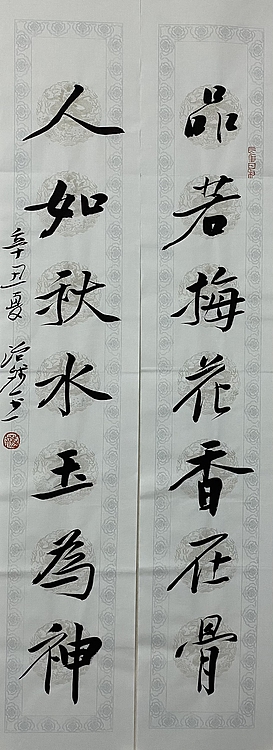 品若梅花香在骨
人如秋水玉為神
辛丑夏